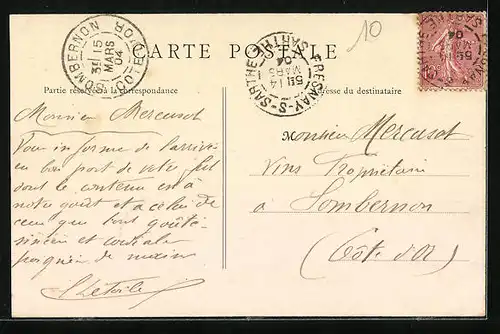 10
CARTE POSTALE
SOMBERNON
COTE D'OR
15
MARS
04
FRESNAY-S-SARTHE
SARTHE
14
MARS
04
Partie réservée à la correspondance
Adresse du destinataire
Monsieur Mercusot
Vous informe de l'arrivée
en bon port de votre fût
dont le contenu est à
notre goût et à celui de
ceux qui l'ont goûté.
sincère et cordiale
poignée de mains
L'Etoile
Monsieur Mercusot
Vins Propriétaire
à Sombernon
(Côte d'Or)